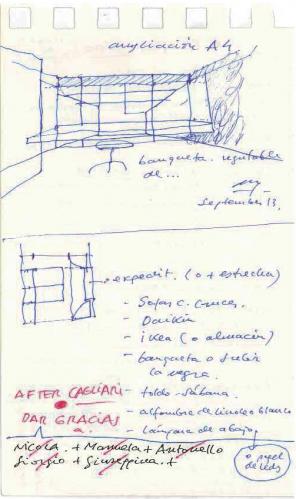 ampliación A4
banqueta. regulables
de ...
September 13,
expedit. (o + estrecha)
- Sofas C. Cruces.
- Daikin
- ikea (o almacén)
- banqueta o subir
la negra.
- toldo-sábana.
- alfombra de linoleo blanco
- lámpara de abajo
AFTER CAGLIARI
DAR GRACIAS
Nicola. + Manuela + Antonello
Giorgio + Giuseppina. +
o papel
de leds